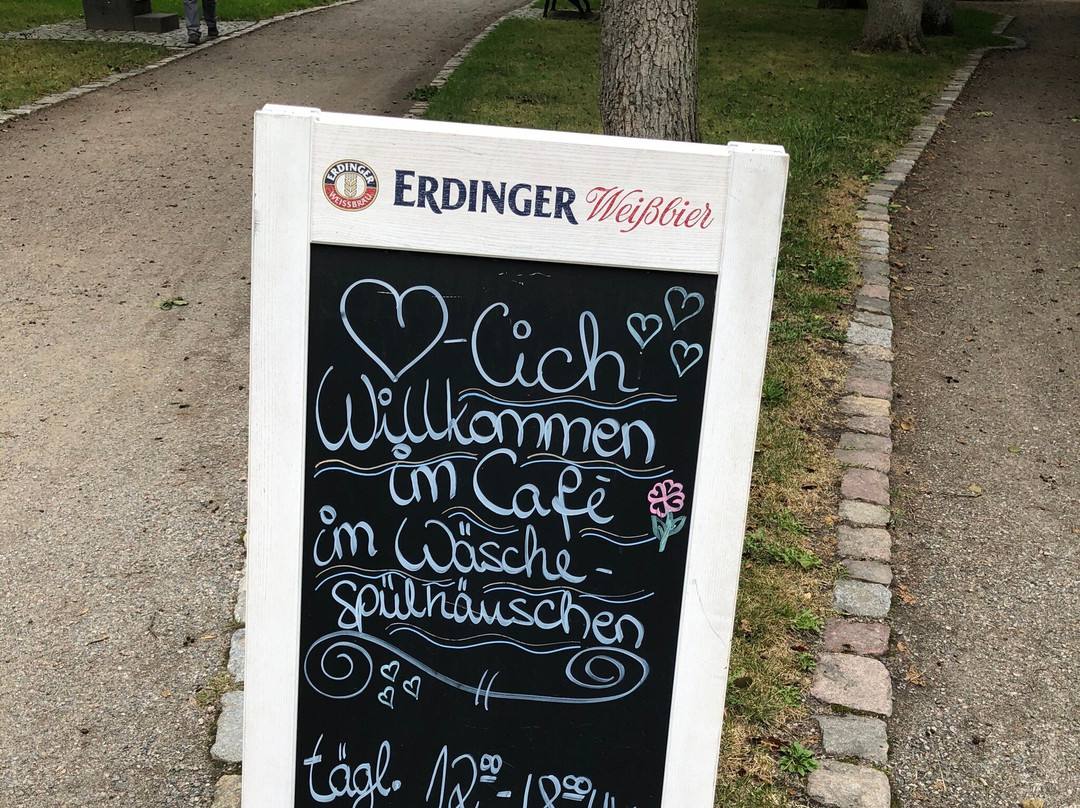 ERDINGER WEISSBRÄU
ERDINGER Weißbier
♡-Lich
Willkommen
im Café
im Wäsche-
spülhäuschen
tägl. 12⁰⁰-18⁰⁰